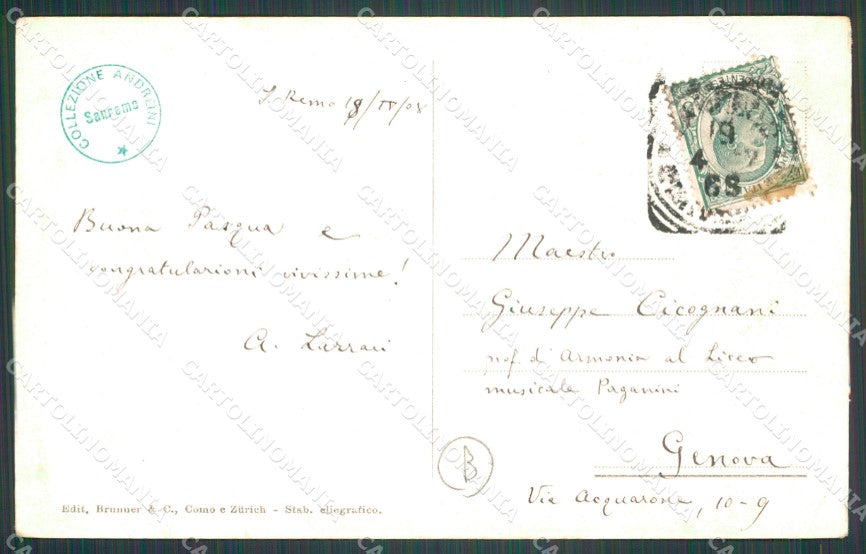 COLLEZIONE ANDREINI
Sanremo
S. Remo 18/IV/08
Buona Pasqua e
congratulazioni vivissime!
A.
19
4
Maestro
Giuseppe Cicognani
prof. d'Armonia al Liceo
musicale Paganini
Genova
Via Acquarone, 10-9
B
Edit. Brunner & C., Como e Zürich - Stab. eliografico.
CARTOLINOMANIA